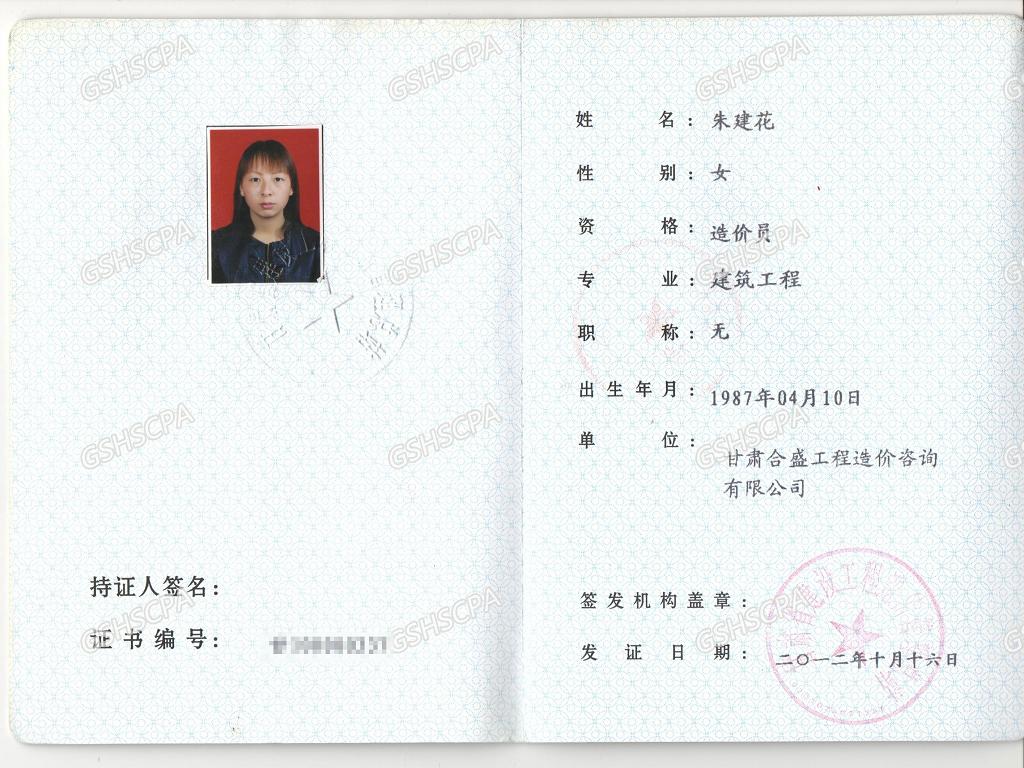 持证人签名：
证书编号：
姓名：朱建花
性别：女
资格：造价员
专业：建筑工程
职称：无
出生年月：1987年04月10日
单位：甘肃合盛工程造价咨询
有限公司
签发机构盖章：
发证日期：二〇一二年十月十六日
GSHSCPA
GSHSCPA
GSHSCPA
GSHSCPA
GSHSCPA
GSHSCPA
GSHSCPA
GSHSCPA
GSHSCPA
GSHSCPA
GSHSCPA
GSHSCPA